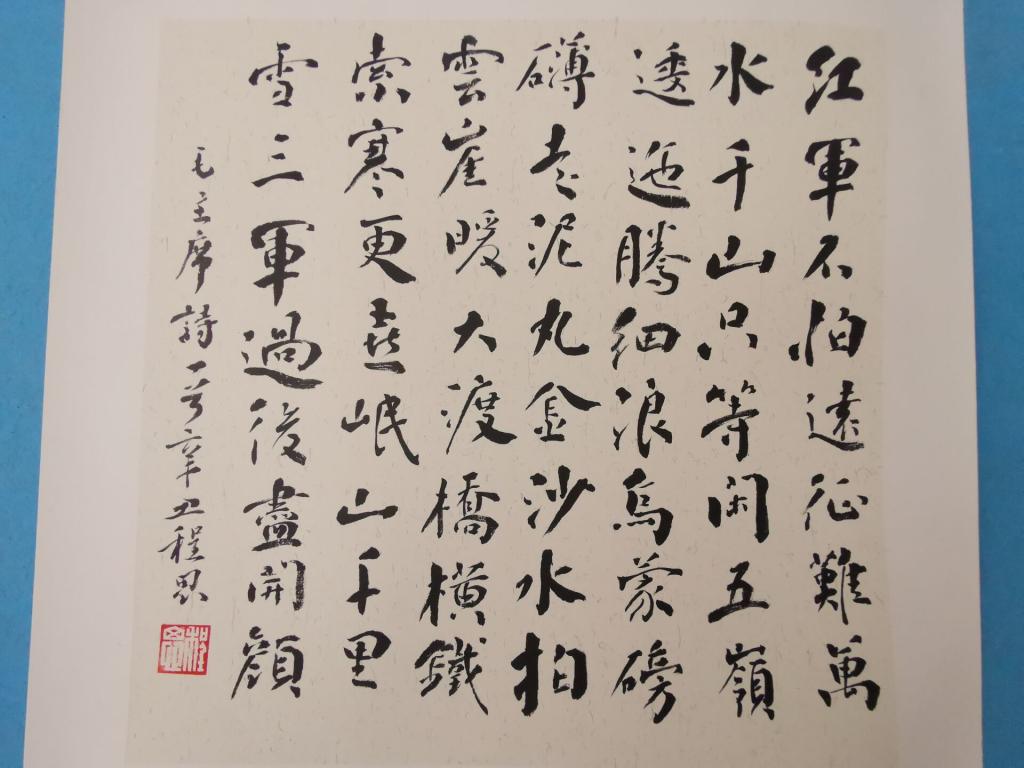 紅軍不怕遠征難萬
水千山只等闲五嶺
逶迤騰細浪烏蒙磅
礴走泥丸金沙水拍
雲崖暖大渡橋横鐵
索寒更喜岷山千里
雪三軍過後盡開顔
毛主席詩一首辛丑程